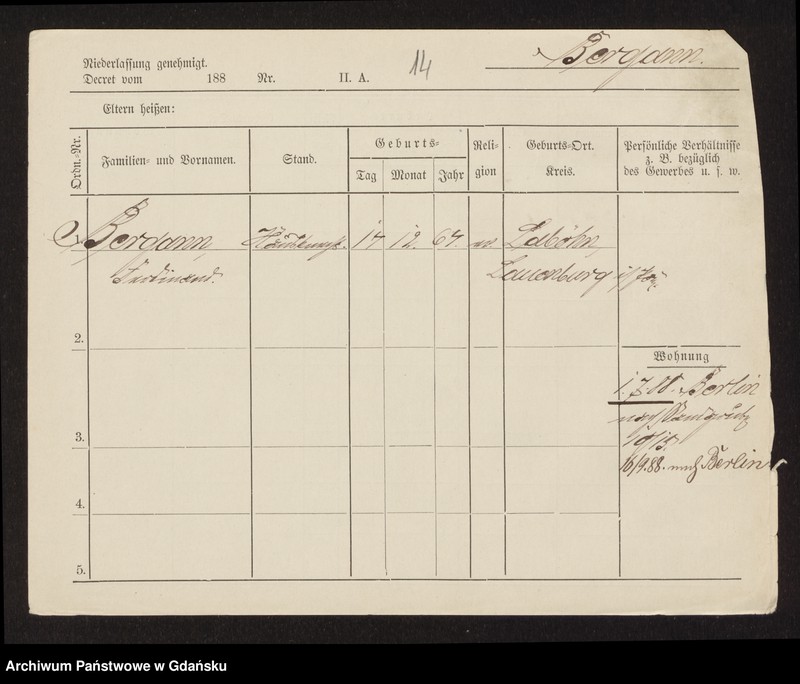 Niederlassung genehmigt.
Decret vom 188 Nr. II. A. 14
Bergann.
Eltern heißen:
Ordn.-Nr. Familien- und Vornamen. Stand. Geburts- Tag Monat Jahr Religion Geburts-Ort. Kreis. Persönliche Verhältnisse
z. B. bezüglich
des Gewerbes u. s. w.
Bergann, 17 12. 67. ev. Laböhn,
Ferdinand. Lauenburg i/Po.
2.
Wohnung
1.7.88. Berlin
nach
3.
16/9.88. nach Berlin
4.
5.
Archiwum Państwowe w Gdańsku